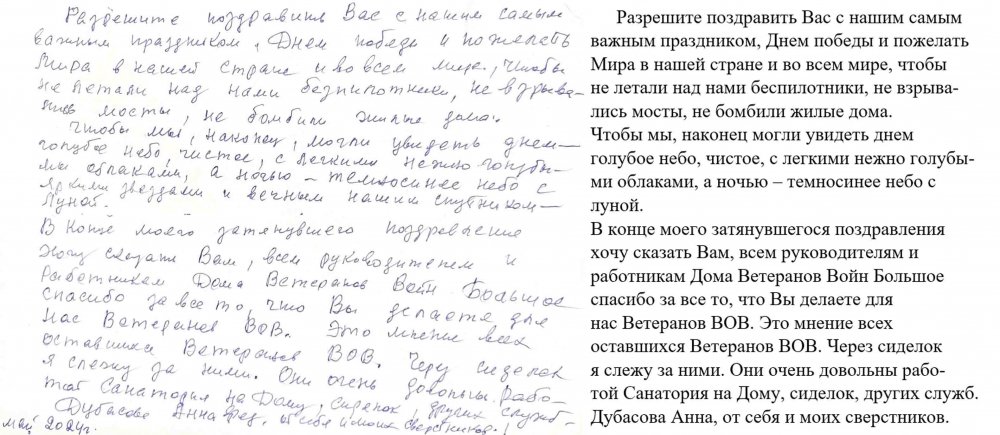 Разрешите поздравить Вас с нашим самым
важным праздником, Днем победы и пожелать
Мира в нашей стране и во всем мире, чтобы
не летали над нами безпилотники, не взрыва-
лись мосты, не бомбили жилые дома.
Чтобы мы, наконец, могли увидеть днем—
голубое небо, чистое, с легкими нежно голубы-
ми облаками, а ночью – темносинее небо с
яркими звездами и вечным нашим спутником—
Луной.
В конце моего затянувшего поздравление
Хочу сказать Вам, всем руководителем и
Работникам Дома Ветеранов Войн Большое
спасибо за все то, что Вы делаете для
Нас Ветеранов ВОВ. Это мнение всех
оставшихся Ветеранов ВОВ. Через сиделок
я слежу за ними. Они очень довольны Рабо-
той Санатория на Дому, сиделок, других служб-
Дубасова Анна Фед, от себя и моих сверстников.
май 2024г.
Разрешите поздравить Вас с нашим самым
важным праздником, Днем победы и пожелать
Мира в нашей стране и во всем мире, чтобы
не летали над нами беспилотники, не взрыва-
лись мосты, не бомбили жилые дома.
Чтобы мы, наконец могли увидеть днем
голубое небо, чистое, с легкими нежно голубы-
ми облаками, а ночью – темносинее небо с
луной.
В конце моего затянувшегося поздравления
хочу сказать Вам, всем руководителям и
работникам Дома Ветеранов Войн Большое
спасибо за все то, что Вы делаете для
нас Ветеранов ВОВ. Это мнение всех
оставшихся Ветеранов ВОВ. Через сиделок
я слежу за ними. Они очень довольны рабо-
той Санатория на Дому, сиделок, других служб.
Дубасова Анна, от себя и моих сверстников.